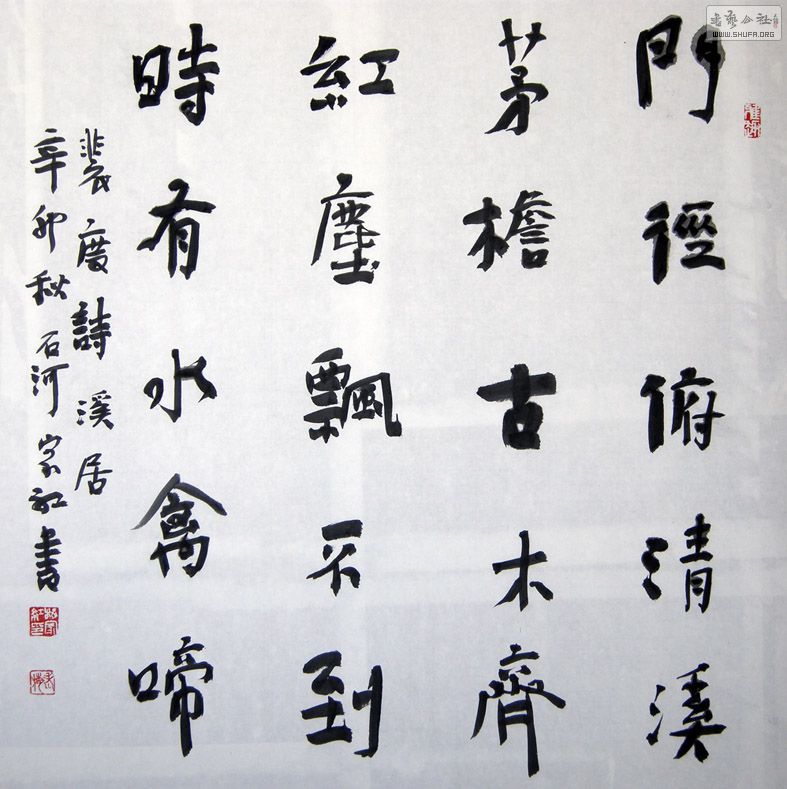 門徑俯清溪
茅檐古木齊
紅塵飄不到
時有水禽啼
裴度詩溪居
辛卯秋石河家红書
書藝公社
WWW.SHUFA.ORG